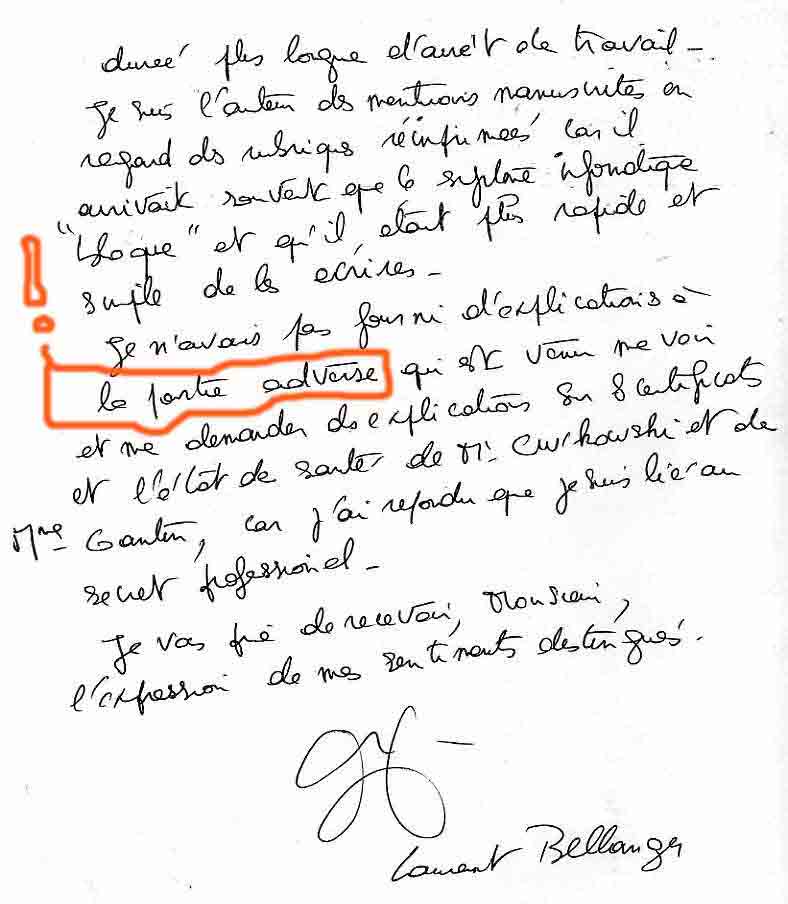 durée plus longue d'arrêt de travail -
Je suis l'auteur des mentions manuscrites en
regard des rubriques réimprimées car il
arrivait souvent que le système informatique
"bloque" et qu'il était plus rapide et
simple de les écrires -
Je n'avais pas fourni d'explications à
la partie adverse qui est venu me voir
et me demander des explications sur 8 certificats
et l'état de santé de Mr Cwikowski et de
Mme Gautier, car j'ai répondu que je suis lié au
secret professionnel -
Je vous prie de recevoir, Monsieur,
l'expression de mes sentiments distingués.
Laurent Bellanger